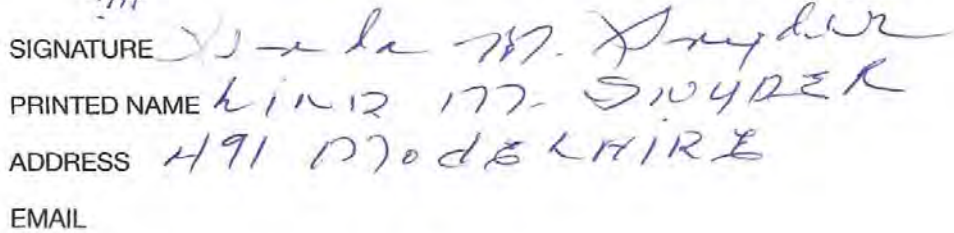 SIGNATURE Linda M. Snyder
PRINTED NAME LINDA M. SNYDER
ADDRESS 491 MODEL
EMAIL